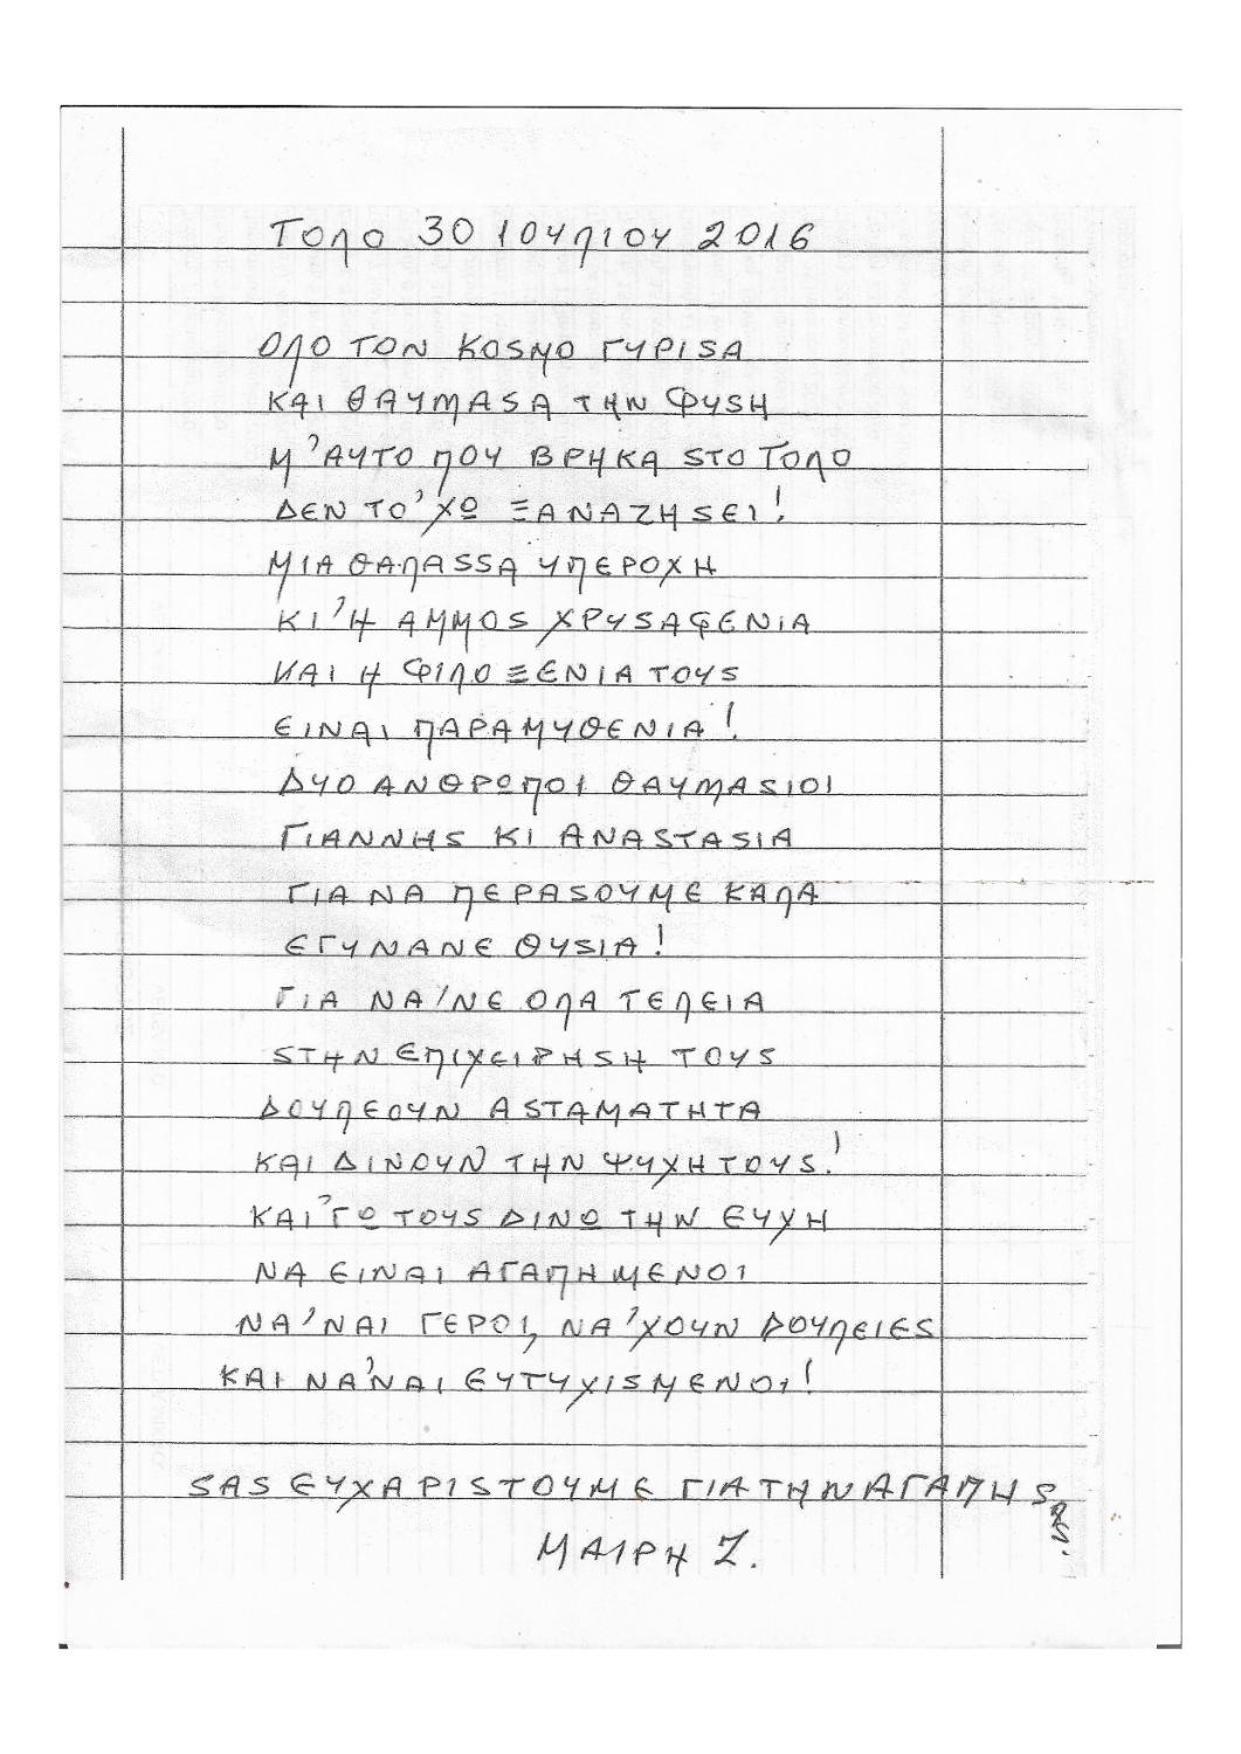 ΤΟΛΟ 30 ΙΟΥΛΙΟΥ 2016
ΟΛΟ ΤΟΝ ΚΟΣΜΟ ΓΥΡΙΣΑ
ΚΑΙ ΘΑΥΜΑΣΑ ΤΗΝ ΦΥΣΗ
Μ'ΑΥΤΟ ΠΟΥ ΒΡΗΚΑ ΣΤΟ ΤΟΛΟ
ΔΕΝ ΤΟ'ΧΩ ΞΑΝΑΖΗΣΕΙ!
ΜΙΑ ΘΑΛΑΣΣΑ ΥΠΕΡΟΧΗ
ΚΙ'Η ΑΜΜΟΣ ΧΡΥΣΑΦΕΝΙΑ
ΚΑΙ Η ΦΙΛΟΞΕΝΙΑ ΤΟΥΣ
ΕΙΝΑΙ ΠΑΡΑΜΥΘΕΝΙΑ!
ΔΥΟ ΑΝΘΡΩΠΟΙ ΘΑΥΜΑΣΙΟΙ
ΓΙΑΝΝΗΣ ΚΙ ΑΝΑΣΤΑΣΙΑ
ΓΙΑ ΝΑ ΠΕΡΑΣΟΥΜΕ ΚΑΛΑ
ΕΓΥΝΑΝΕ ΘΥΣΙΑ!
ΓΙΑ ΝΑ'ΝΕ ΟΛΑ ΤΕΛΕΙΑ
ΣΤΗΝ ΕΠΙΧΕΙΡΗΣΗ ΤΟΥΣ
ΔΟΥΛΕΟΥΝ ΑΣΤΑΜΑΤΗΤΑ
ΚΑΙ ΔΙΝΟΥΝ ΤΗΝ ΨΥΧΗ ΤΟΥΣ!
ΚΑΙ'ΓΩ ΤΟΥΣ ΔΙΝΩ ΤΗΝ ΕΥΧΗ
ΝΑ ΕΙΝΑΙ ΑΓΑΠΗΜΕΝΟΙ
ΝΑ'ΝΑΙ ΓΕΡΟΙ, ΝΑ'ΧΟΥΝ ΔΟΥΛΕΙΕΣ
ΚΑΙ ΝΑ'ΝΑΙ ΕΥΤΥΧΙΣΜΕΝΟΙ!
ΣΑΣ ΕΥΧΑΡΙΣΤΟΥΜΕ ΓΙΑ ΤΗΝ ΑΓΑΠΗ ΣΑΣ.
ΜΑΙΡΗ Ζ.